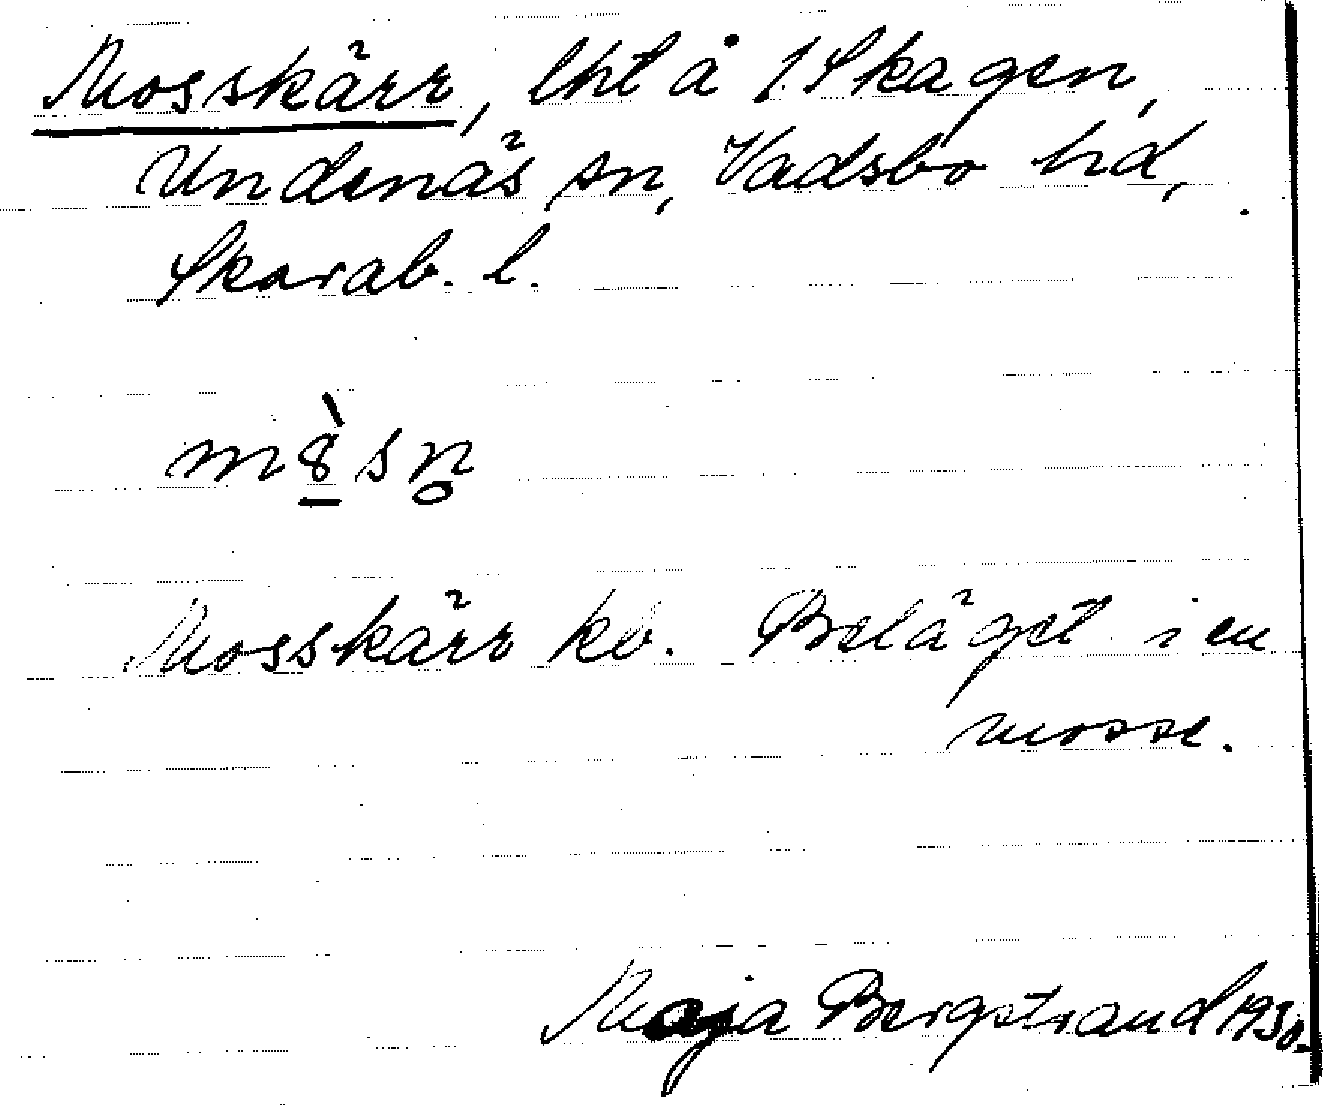 Mosskärr, lht å 1 Skagen,
Undenäs sn, Vadsbo hd,
Skarab. l.
m8̱̀sn̥
Mosskärr kb. Beläget i en
mosse.
Maja Bergstrand 1930.